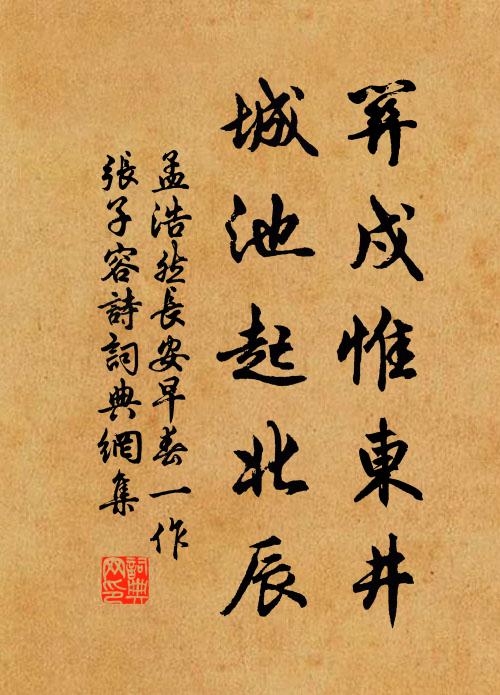 關戍惟東井
城池起北辰
孟浩然長安早春一作
張子容詩詞典網集
詞典
网印